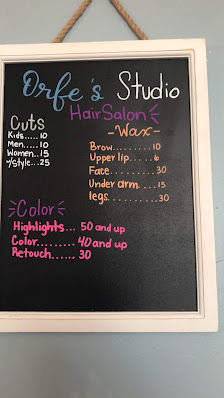 Orfe's Studio
Hair Salon
Cuts
Kids.....10
Men.....10
Women..15
w/style...25
-Wax-
Brow.........10
Upper lip.....6
Face..........30
Under arm....15
legs..........30
Color
Highlights... 50 and up
Color......... 40 and up
Retouch...... 30